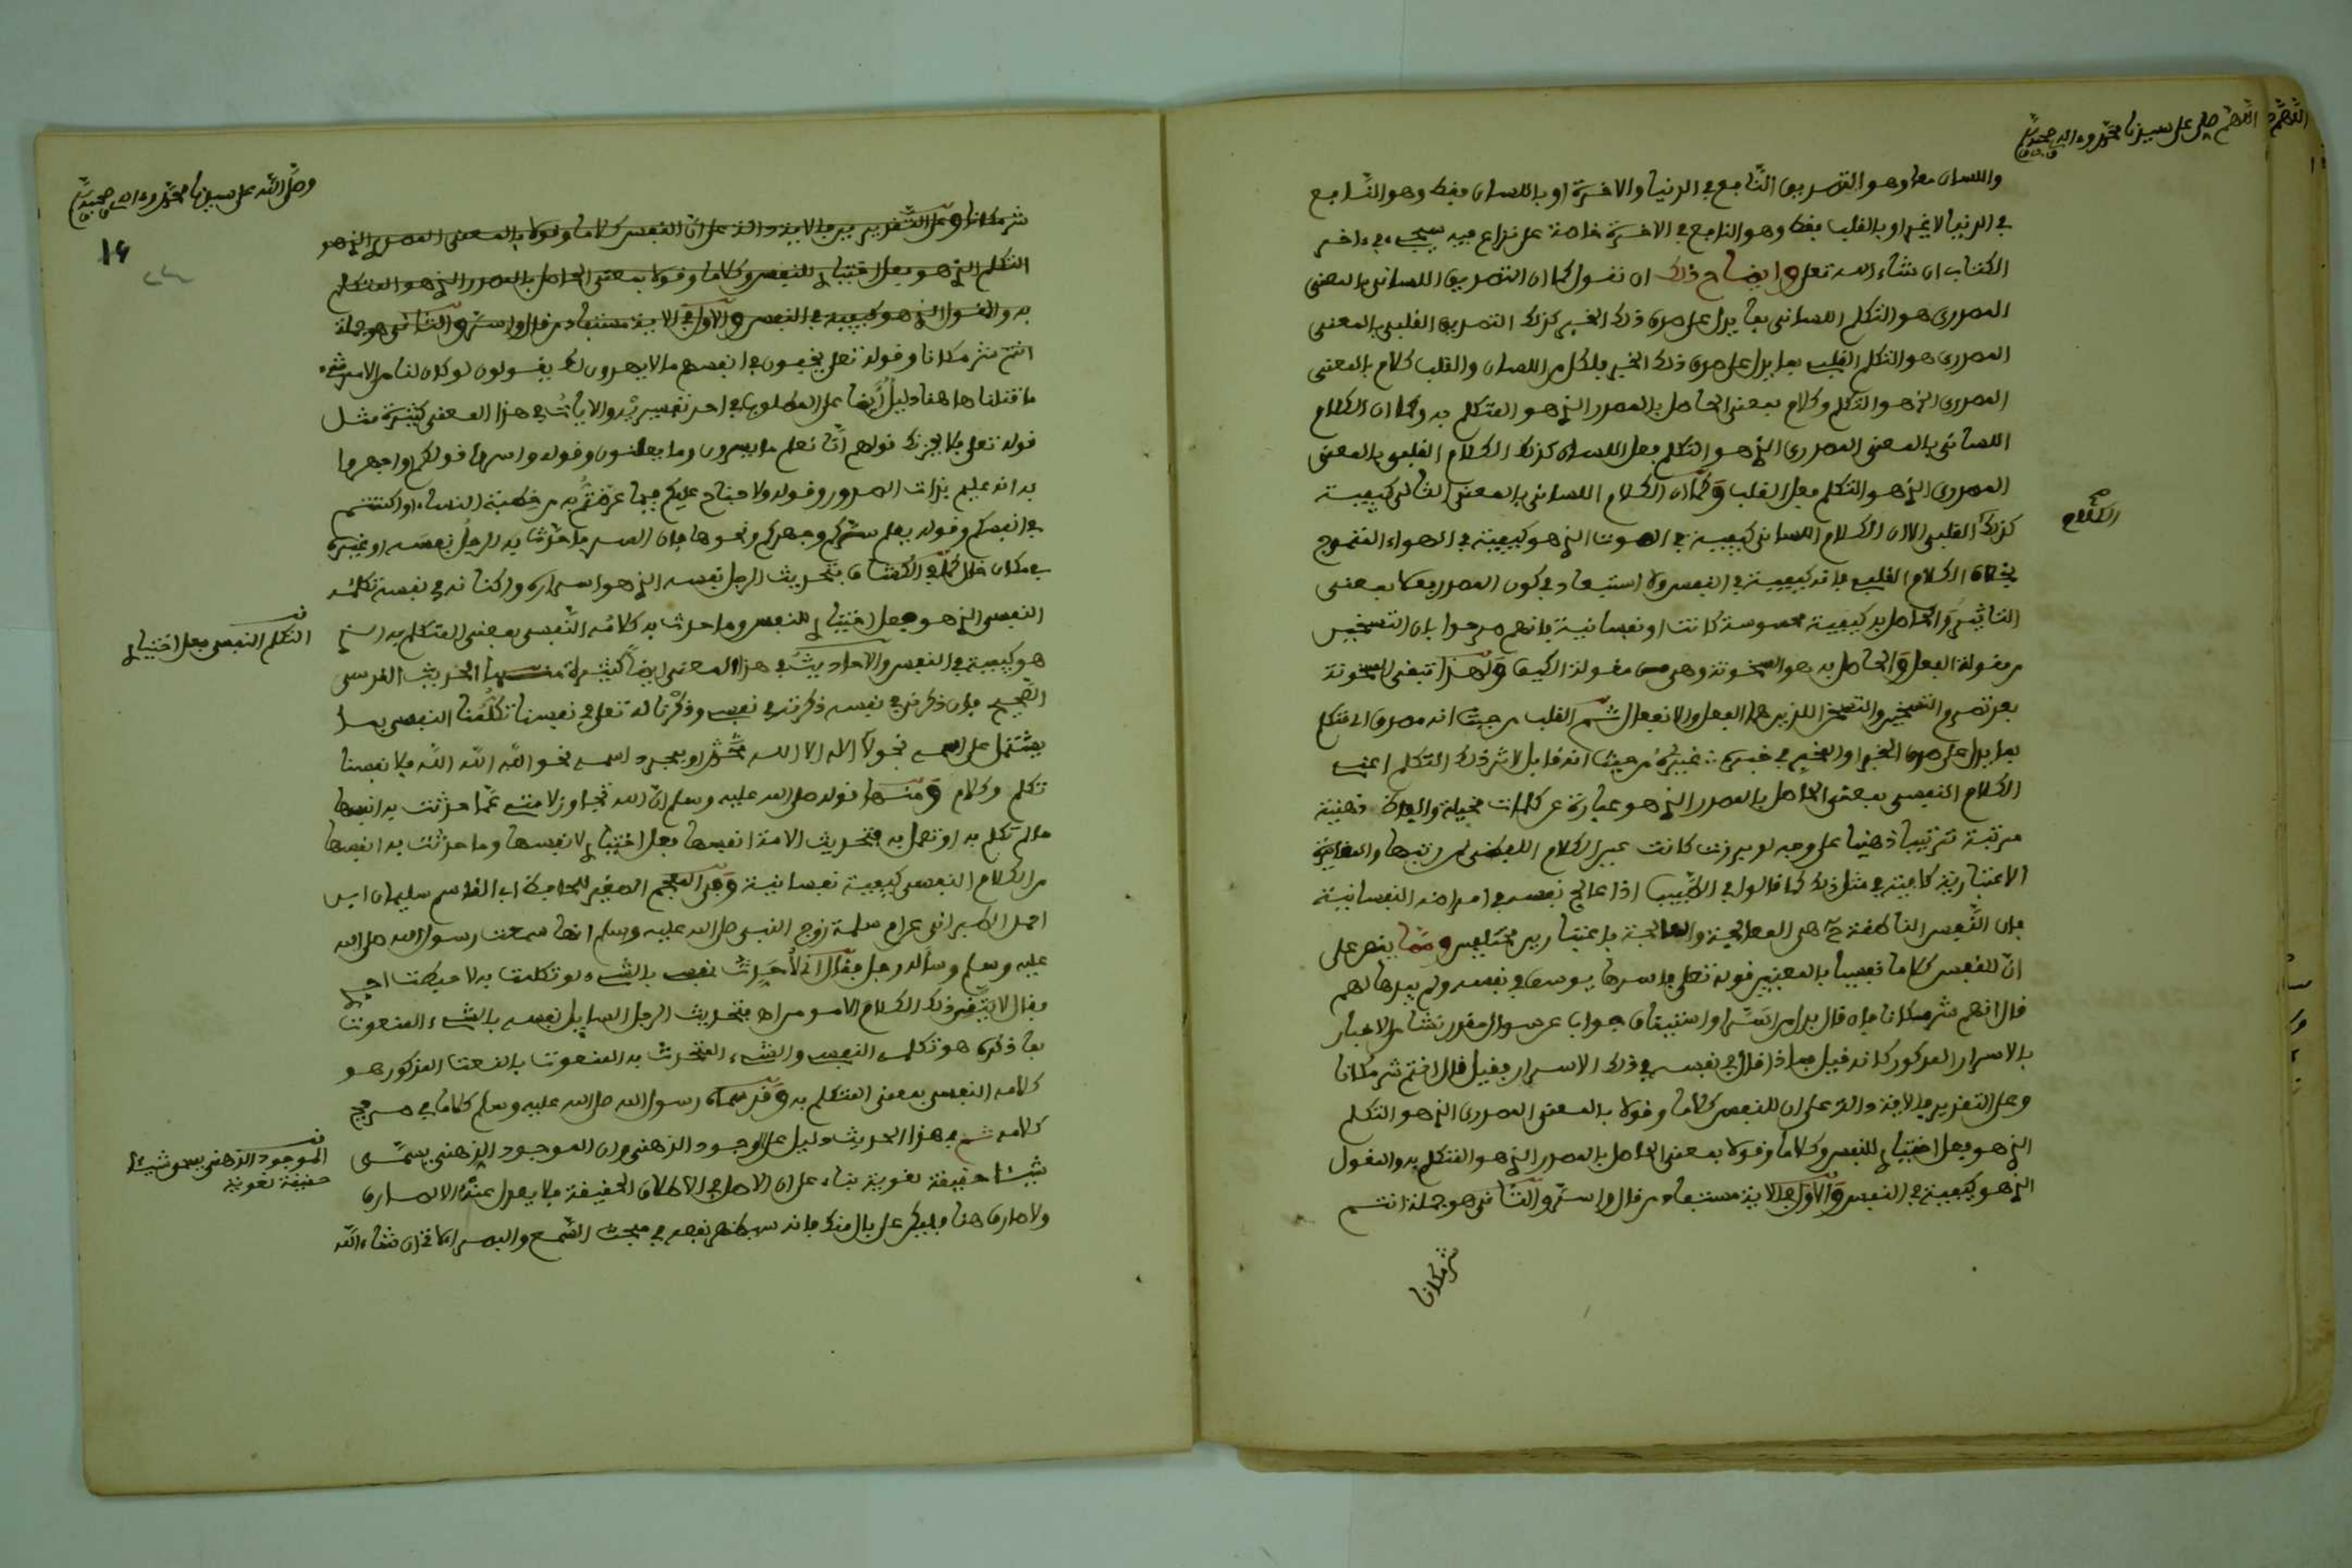 اللهم صل على سيدنا محمد وءاله وصحبه
واللسان معا وهو التصديق النافع في الدنيا والاخرة او باللسان فقط وهو النافع
في الدنيا لا غير او بالقلب فقط وهو النافع في الاخرة خاصة على نزاع فيه سيجيء في ءاخر
الكتاب ان شاء الله تعلى وايضاح ذلك ان نقول كما ان التصديق اللساني بالمعنى
المصدري هو التكلم اللساني بما يدل على صدق ذلك الخبر كذلك التصديق القلبي بالمعنى
المصدري هو التكلم القلبي بما يدل على صدق ذلك الخبر فلكل من اللسان والقلب كلام بالمعنى
المصدري الذي هو التكلم وكلام بمعنى الحاصل بالمصدر الذي هو المتكلم به وكما ان الكلام
اللساني بالمعنى المصدري الذي هو التكلم فعل اللسان كذلك الكلام القلبي بالمعنى
المصدري الذي هو التكلم فعل القلب وكما ان الكلام اللساني بالمعنى الثاني كيفية
كذلك القلبي الا ان الكلام اللساني كيفية في الصوت الذي هو كيفية في الهواء المتموج
بخلاف الكلام القلبي فانه كيفية في النفس ولا استبعاد في كون المصدر فعلا بمعنى
التاثير والحاصل به كيفية محسوسة كانت او نفسانية فانهم صرحوا بان التسخين
من مقولة الفعل والحاصل به هو السخونة وهي من مقولة الكيف ولهذا تبقى السخونة
بعد تصرم التسخين والتسخن اللذين هما الفعل والانفعال ثم القلب من حيث انه مصدق اي متكلم
بما يدل على صدق الخبر او المخبر في خبره غيره من حيث انه قابل لاثر ذلك التكلم اعني
الكلام النفسي بمعنى الحاصل بالمصدر الذي هو عبارة عن كلمات مخيلة والفاظ ذهنية
مرتبة ترتيبا ذهنيا على وجه لو برزت كانت عين الكلام اللفظي مرتبها والمغايرة
الاعتبارية كافية في مثل ذلك كما قالوا في الطبيب اذا عالج نفسه في امراضه النفسانية
فان النفس الناطقة هي المعالجة والمعالجة باعتبارين مختلفين ومما ينص على
ان للنفس كلاما نفسيا بالمعنيين قوله تعلى فاسرها يوسف في نفسه ولم يبدها لهم
قال انتم شر مكانا فان قال بدل من اسر او استيناف جواب عن سوال مقدر نشا من الاخبار
بالاسرار المذكور كانه قيل فماذا قال في نفسه في ذلك الاسرار فقيل قال انتم شر مكانا
وعلى التقديرين فالاية دالة على ان للنفس كلاما وقولا بالمعنى المصدري الذي هو التكلم
الذي هو فعل اختياري للنفس وكلاما وقولا بمعنى الحاصل بالمصدر الذي هو المتكلم به والمقول
الذي هو كيفية في النفس والاول في الاية مستفاد من قال واسر والثاني هو جملة انتم
شر مكانا
الكلام
وصلى الله على سيدنا محمد وءاله وصحبه
١٤
شر مكانا وعلى التقديرين فالاية دالة على ان للنفس كلاما وقولا بالمعنى المصدري الذي هو
التكلم الذي هو فعل اختياري للنفس وكلاما وقولا بمعنى الحاصل بالمصدر الذي هو المتكلم
به والمقول الذي هو كيفية في النفس والاول في الاية مستفاد من قال واسر والثاني هو جملة
انتم شر مكانا وقوله تعلى يخفون في انفسهم ما لا يبدون لك يقولون لو كان لنا من الامر شيء
ما قتلنا ها هنا دليل ايضا على المطلوب في احد تفسيريه والايات في هذا المعنى كثيرة مثل
قوله تعلى فلا يحزنك قولهم انا نعلم ما يسرون وما يعلنون وقوله واسروا قولكم او اجهروا
به انه عليم بذات الصدور وقوله ولا جناح عليكم فيما عرضتم به من خطبة النساء او اكننتم
في انفسكم وقوله يعلم سركم وجهركم ونحوها فان السر ما حدث به الرجل نفسه او غيره
في مكان خال كما في الكشاف فتحديث الرجل نفسه الذي هو اسراره واكنانه في نفسه تكلمه
النفسي الذي هو فعل اختياري للنفس وما حدث به كلامه النفسي بمعنى المتكلم به الذي
هو كيفية في النفس والاحاديث في هذا المعنى ايضا كثيرة منها الحديث القدسي
الصحيح فان ذكرني في نفسه ذكرته في نفسي وذكرنا له تعلى في نفسنا تكلمنا النفسي بما
يشتمل على اسمه نحو لا اله الا الله محمد او بمجرد اسمه نحو الله الله الله فلانفسنا
تكلم وكلام ومنها قوله صلى الله عليه وسلم ان الله تجاوز لامتي عما حدثت به انفسها
ما لم تكلم به او تعمل به فتحديث الامة انفسها فعل اختياري لانفسها وما حدثت به انفسها
من الكلام النفسي كيفية نفسانية وفي المعجم الصغير للحافظ ابي القاسم سليمان ابن
احمد الطبراني عن ام سلمة زوج النبي صلى الله عليه وسلم انها سمعت رسول الله صلى الله
عليه وسلم وساله رجل فقال اني لاحدث نفسي بالشيء لو تكلمت به لاحبطت اجري
فقال لا يلقى ذلك الكلام الا مومن اه فتحديث الرجل السايل نفسه بالشيء المنعوت
بما ذكره هو تكلمه النفسي والشيء المتحدث به المنعوت بالنعت المذكور هو
كلامه النفسي بمعنى المتكلم به وقد سماه رسول الله صلى الله عليه وسلم كلاما في صريح
كلامه ثم في هذا الحديث دليل على الوجود الذهني وان الموجود الذهني يسمى
شيئا حقيقة لغوية بناء على ان الاصل في الاطلاق الحقيقة فلا يعدل عنه الا لصارف
ولا صارف هنا فليكن على بال منك فانه سيظهر نفعه في مبحث السمع والبصر ان شاء الله
التكلم النفسي فعل اختياري
الموجود الذهني يسمى شيئا
حقيقة لغوية